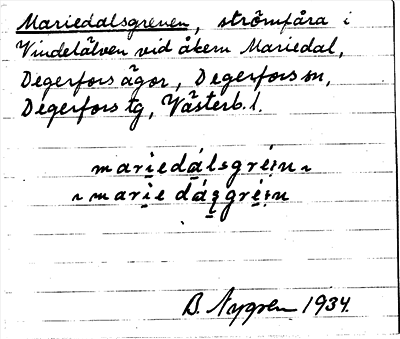 Mariedalsgrenen, strömfåra i
Vindelälven vid åkern Mariedal,
Degerfors ägor, Degerfors sn,
Degerfors tg, Västerb. l.
mariedálsgrén
marie dásgrén
B. Nygren 1934.